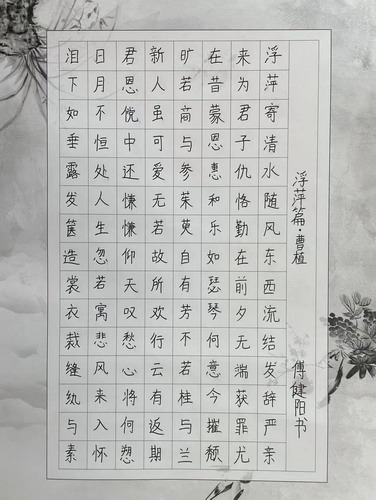 浮萍篇·曹植
傅健阳书
浮萍寄清水随风东西流结发辞严亲
来为君子仇恪勤在前夕无端获罪尤
在昔蒙恩惠和乐如瑟琴何意今摧颓
旷若商与参茱萸自有芳不若桂与兰
新人虽可爱无若故所欢行云有返期
君恩傥中还慊慊仰天叹愁心将何愬
日月不恒处人生忽若寓悲风来入怀
泪下如垂露发箧造裳衣裁缝纨与素